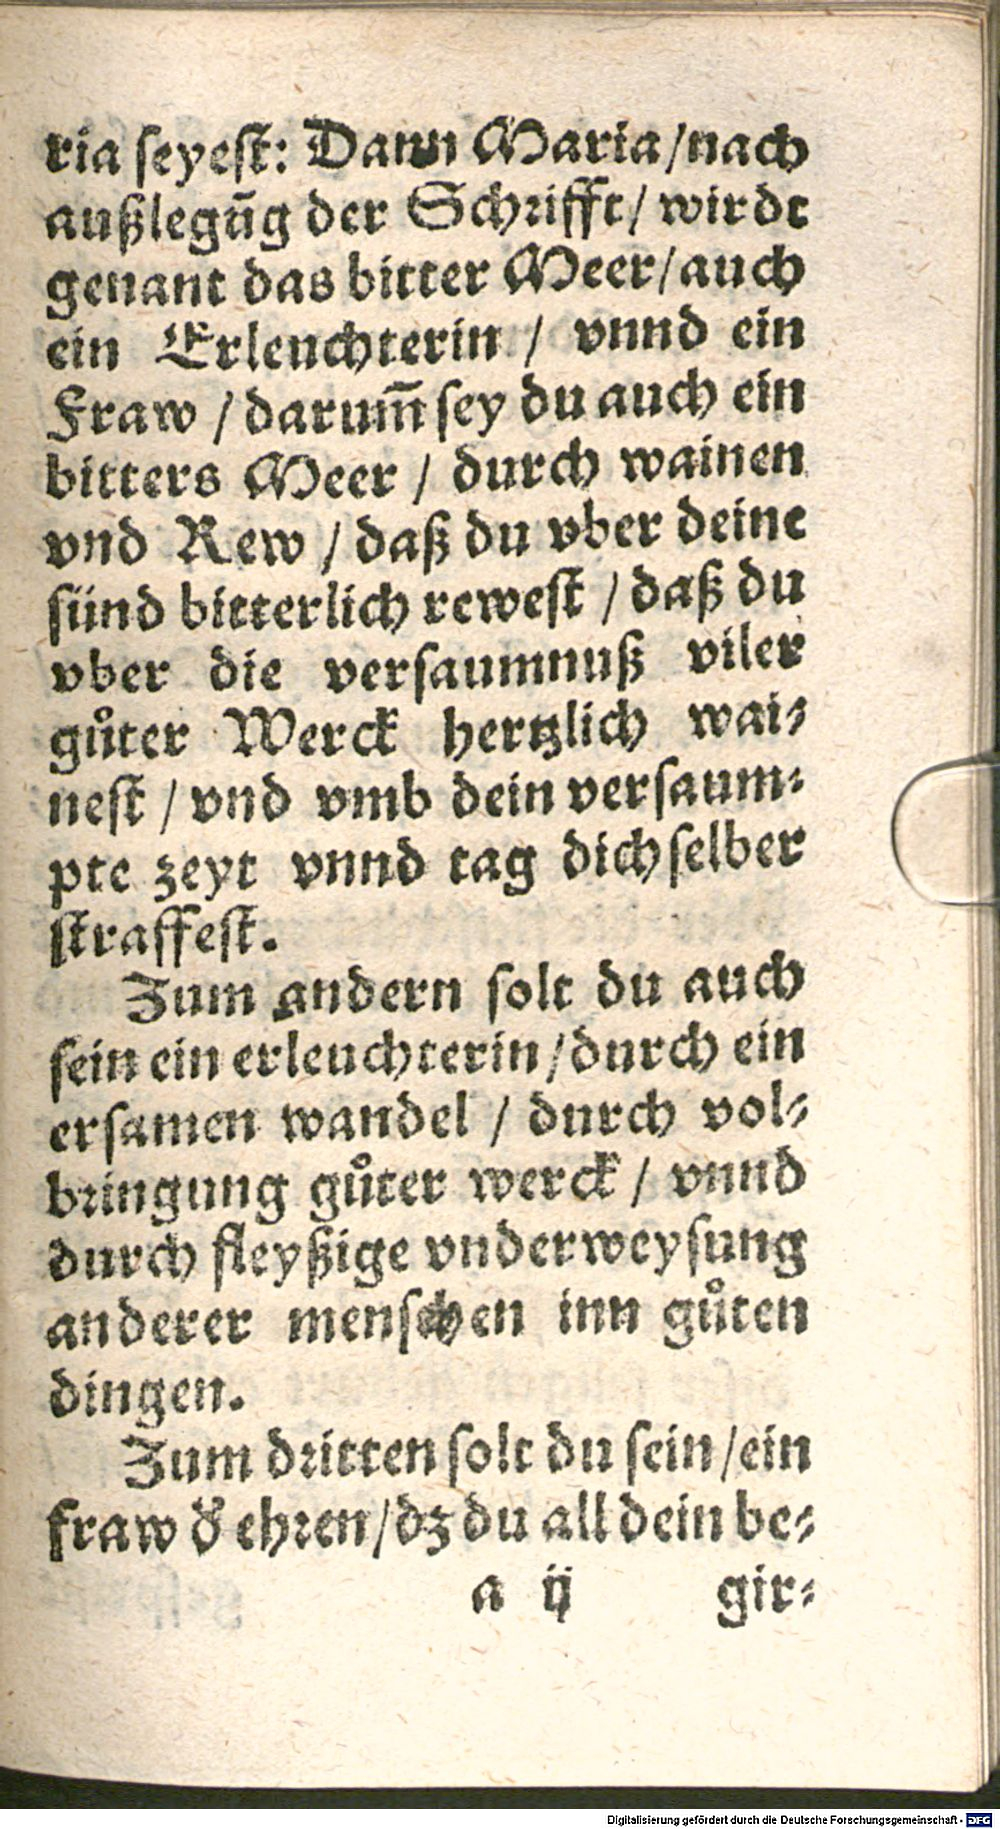 ria ſeyeſt: Dann Maria / nach
außlegūg der Schrifft / wirdt
genant das bitter Meer / auch
ein Erleuchterin / vnnd ein
Fraw / darum̄ ſey du auch ein
bitters Meer / durch wainen
vnd Rew / daß du vber deine
ſünd bitterlich reweſt / daß du
vber die verſaumnuß viler
gůter Werck hertzlich wai⸗
neſt / vnd vmb dein verſaum⸗
pte zeyt vnnd tag dich ſelber
ſtraffeſt.
Zum andern ſolt du auch
ſein ein erleuchterin / durch ein
erſamen wandel / durch vol⸗
bringung gůter werck / vnnd
durch fleyßige vnderweyſung
anderer menſchen inn gůten
dingen.
Zum dritten ſolt du ſein / ein
fraw d̕ ehren / dz du all dein be⸗
a ij gir⸗
Digitalisierung gefördert durch die Deutsche Forschungsgemeinschaft - DFG